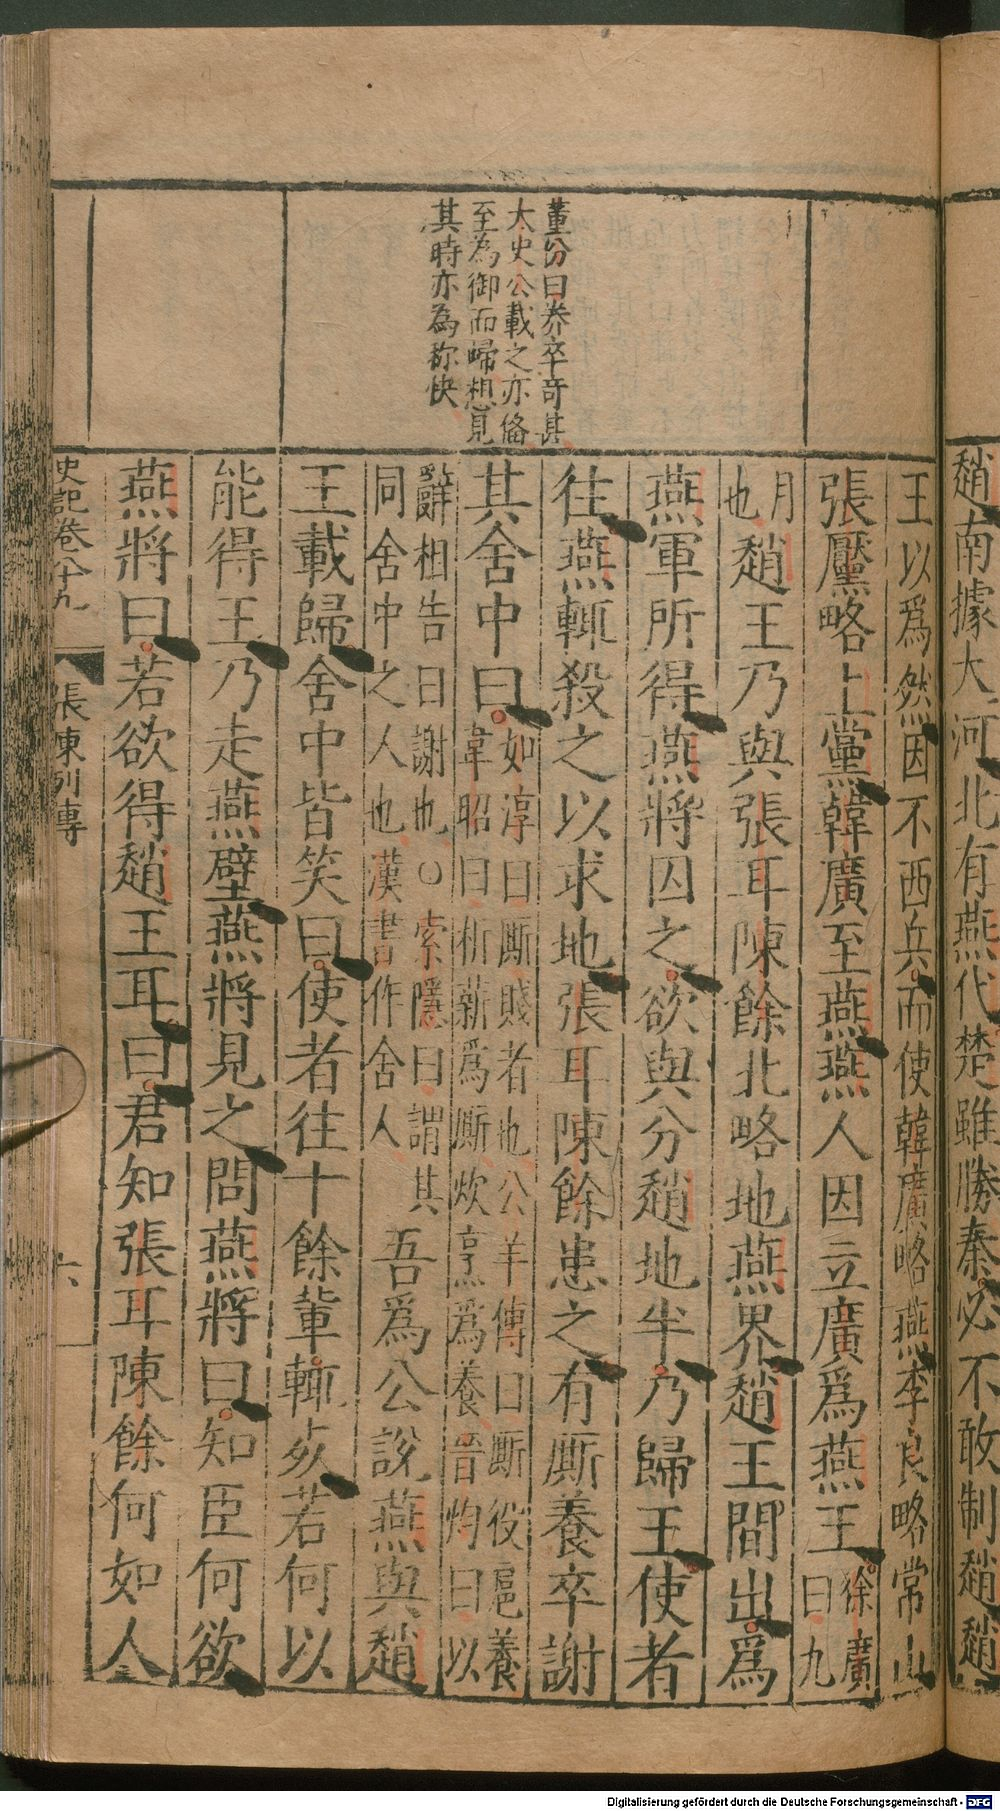 董份曰養卒奇其
太史公載之亦俻
至為御而歸想見
其時亦為称快
趙南據大河北有燕代楚雖勝秦必不敢制趙趙
王以爲然因不西兵而使韓廣略燕李良略常山
張黶略上黨韓廣至燕燕人因立廣爲燕王徐廣
曰九
月
也趙王乃與張耳陳餘北略地燕界趙王間出爲
燕軍所得燕將囚之欲與分趙地半乃歸王使者
往燕輒殺之以求地張耳陳餘患之有厮養卒謝
其舍中曰如淳曰厮賤者也公羊傳曰厮役扈養
韋昭曰析薪爲厮炊烹爲養晉灼曰以
辭相告曰謝也○索隱曰謂其
同舍中之人也漢書作舍人吾爲公說燕與趙
王載歸舍中皆笑曰使者往十餘輩輒死若何以
能得王乃走燕壁燕將見之問燕將曰知臣何欲
燕將曰若欲得趙王耳曰君知張耳陳餘何如人
史記卷八十九 張陳列傳 六
Digitalisierung gefördert durch die Deutsche Forschungsgemeinschaft - DFG